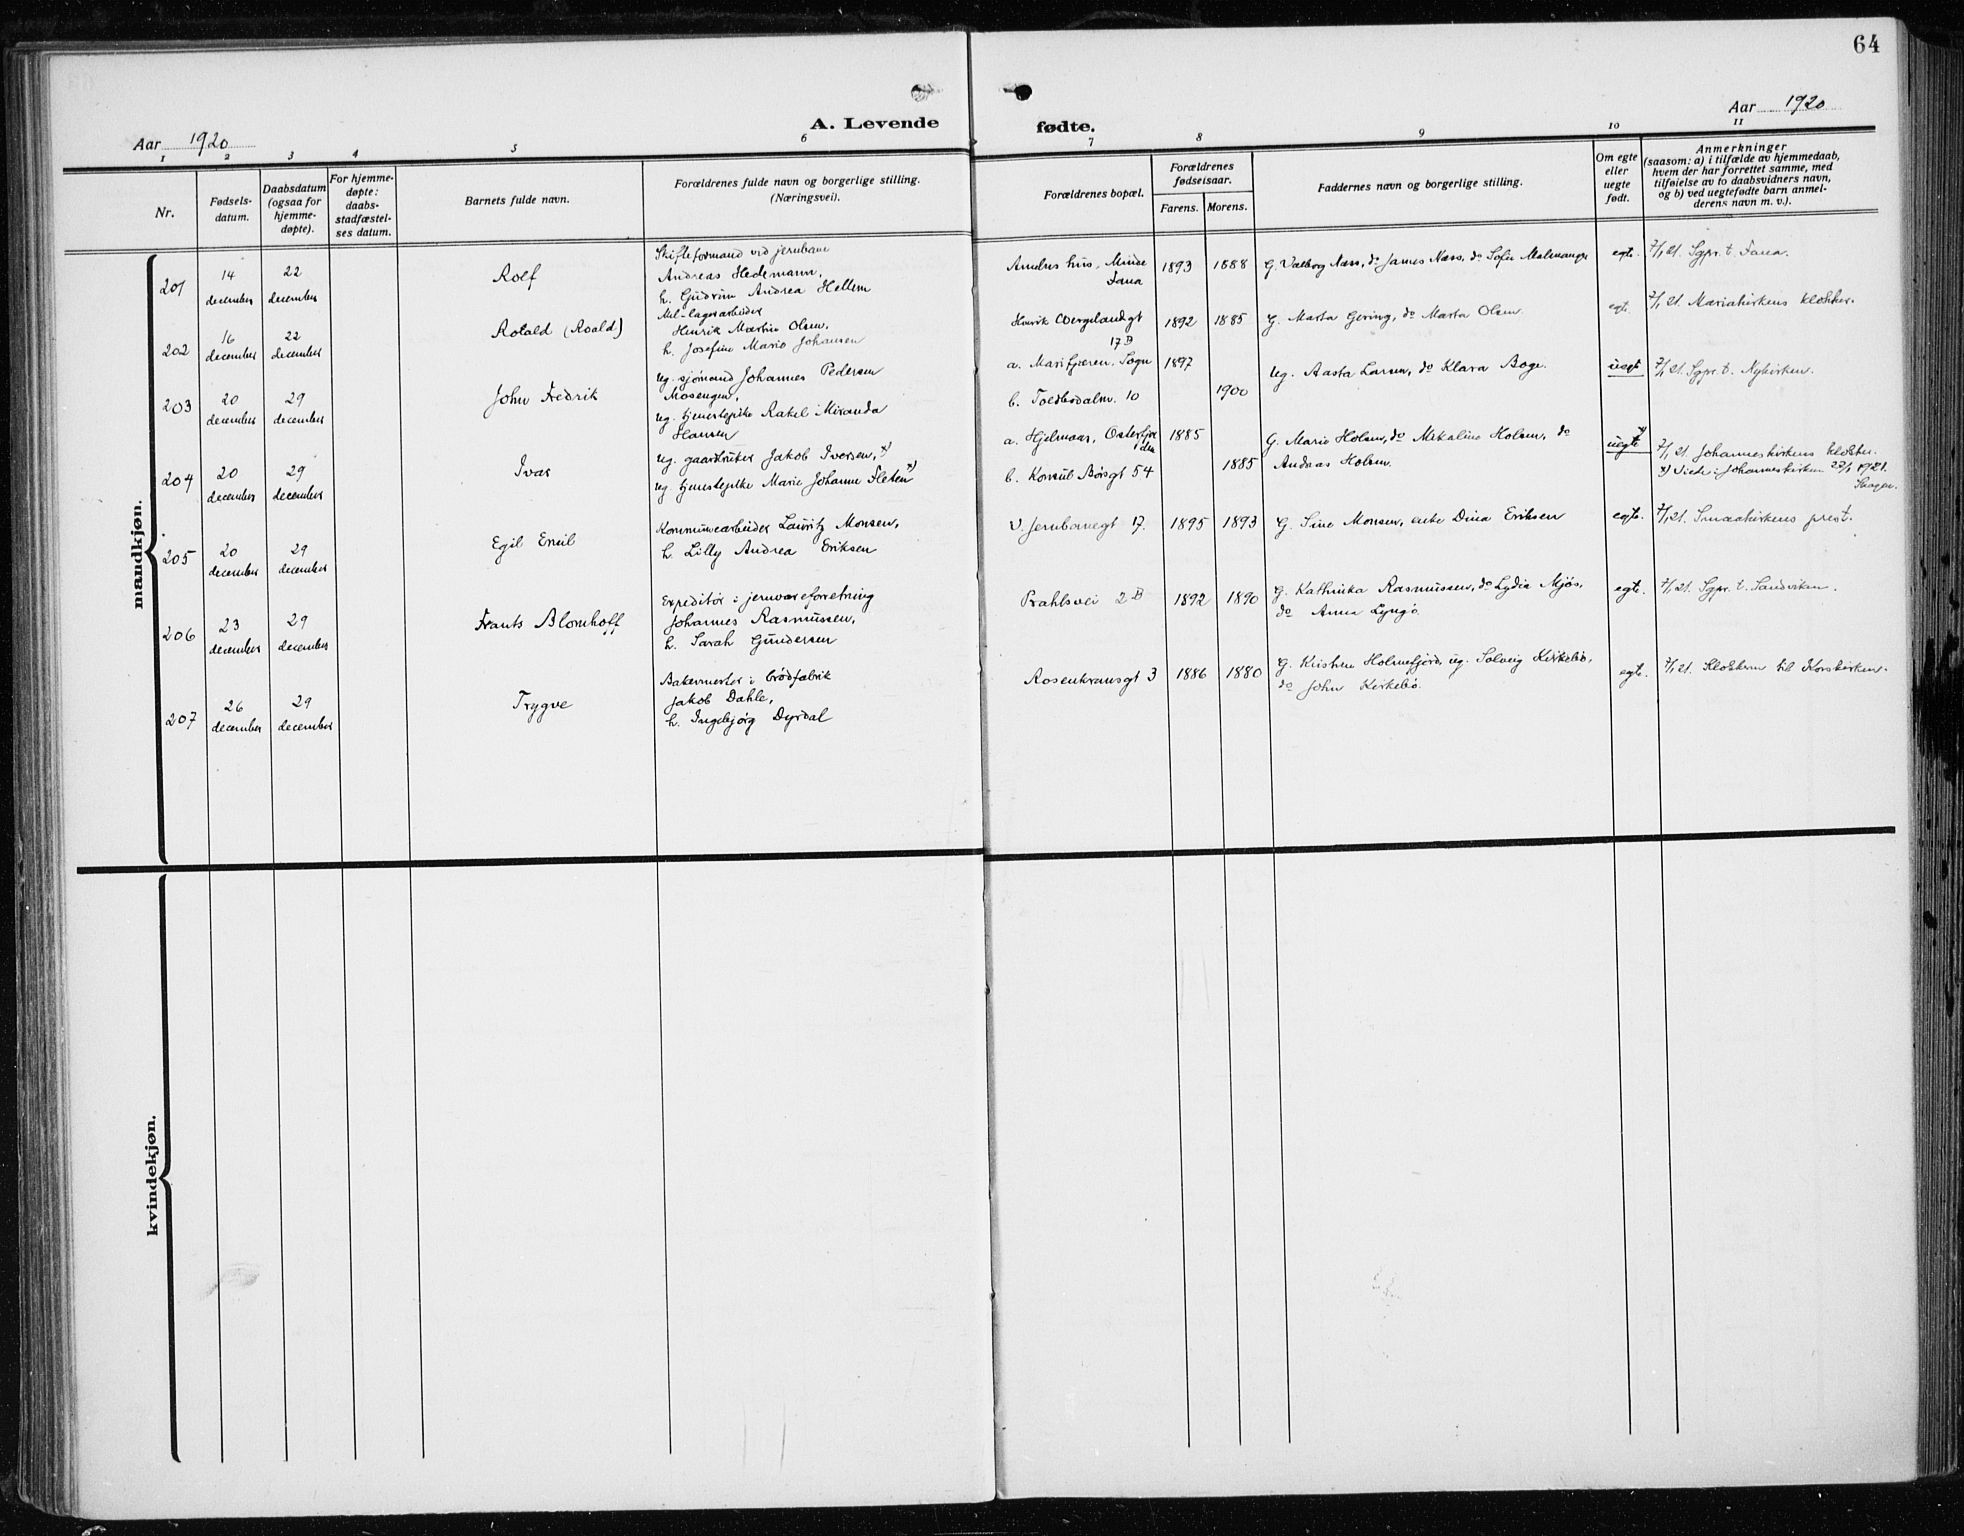 64
Aar 1920
A. Levende
fødte.
Aar 1920
1 2 3 4 5 6 7 8 9 10 11
Nr.
Fødsels-
datum.
Daabsdatum
(ogsaa for
hjemme-
døpte).
For hjemme-
døpte:
daabs-
stadfæstel-
ses datum.
Barnets fulde navn.
Forældrenes fulde navn og borgerlige stilling.
(Næringsvei).
Forældrenes bopæl.
Forældrenes
fødselsaar.
Farens. Morens.
Faddernes navn og borgerlige stilling.
Om egte
eller
uegte
født.
Anmerkninger
(saasom: a) i tilfælde av hjemmedaab,
hvem der har forrettet samme, med
tilføielse av to daabsvidners navn,
og b) ved uegtefødte barn anmel-
derens navn m. v.).
mandkjøn.
201
14
december
22
december
Rolf
Skifteformand ved jernbane
Andreas Hedemann,
h. Gudrun Andrea Hellem
Andres hus, Minde
Fana
1893 1888
G. Valborg Næss, do James Næss, do Sofie Malmanger
egte.
7/1 21. Sgpr. t. Fana.
202
16
december
22
december
Rotald (Roald)
Mel-lagerarbeider
Henrik Martin Olsen,
h. Josefine Marie Johansen
Henrik Wergelandgt
17 B
1892 1885
G. Marta Gering, do Marta Olsen.
egte.
7/1 21. Mariakirkens klokker.
203
20
december
29
december
John Fredrik
ug. sjømand Johannes Pedersen
Mosengen,
ug. tjenestepike Rakel Miranda
Hansen
a. Marifjæren, Sogn
b. Toldbodalm. 10
1897
1900
ug. Aasta Larsen, do Klara Boge.
uegt
7/1 21. Sgpr. t. Nykirken.
204
20
december
29
december
Ivar
ug. gaardbruker Jakob Iversen, x)
ug. tjenestepike Marie Johanne Fleten x)
a. Hjelmaas, Osterfjor
den
b. Konsul Børsgt 54
1885
1885
G. Marie Holsen, do Mikaline Holsen, do
Andreas Holsen.
uegte x)
7/1 21. Johanneskirkens klokker.
x) Viede i Johanneskirken 23/1 1921.
205
20
december
29
december
Egil Emil
Kommunearbeider Lauritz Monsen,
h. Lilly Andrea Eriksen
V. Jernbanegt 17.
1895 1893
G. Sine Monsen, enke Dina Eriksen
egte.
7/1 21. Smaakirkens prest.
206
23
december
29
december
Frants Blomhoff
Expeditør i jernvareforretning
Johannes Rasmussen,
h. Sarah Gundersen
Prahlsvei 2 B
1892 1890
G. Kathinka Rasmussen, do Lydia Mjøs,
do Anna Lyngø
egte.
7/1 21. Sgpr. t. Sandviken.
207
26
december
29
december
Trygve
Bakermester i brødfabrik
Jakob Dahle,
h. Ingebjørg Dyrdal
Rosenkransgt 3
1886 1880
G. Kristen Holmefjord, ug. Solveig Kirkebø,
do John Kirkebø.
egte.
7/1 21. Klokkeren til Korskirken.
kvindekjøn.